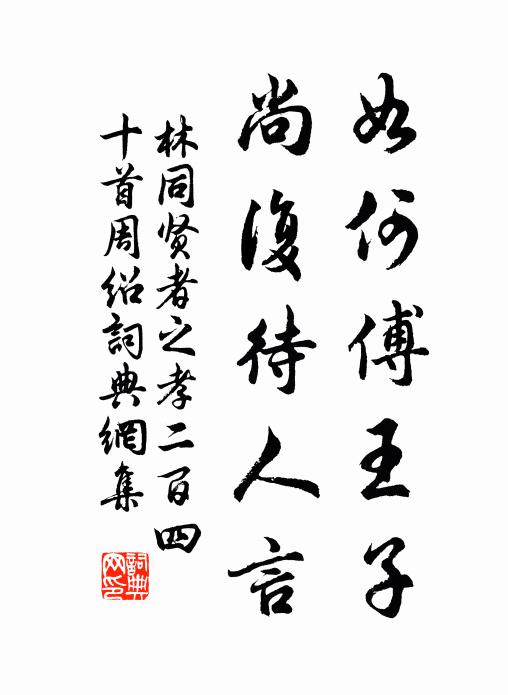 如何傅王子
尚復待人言
林同贤者之孝二百四
十首周绍詞典網集
詞典
网印